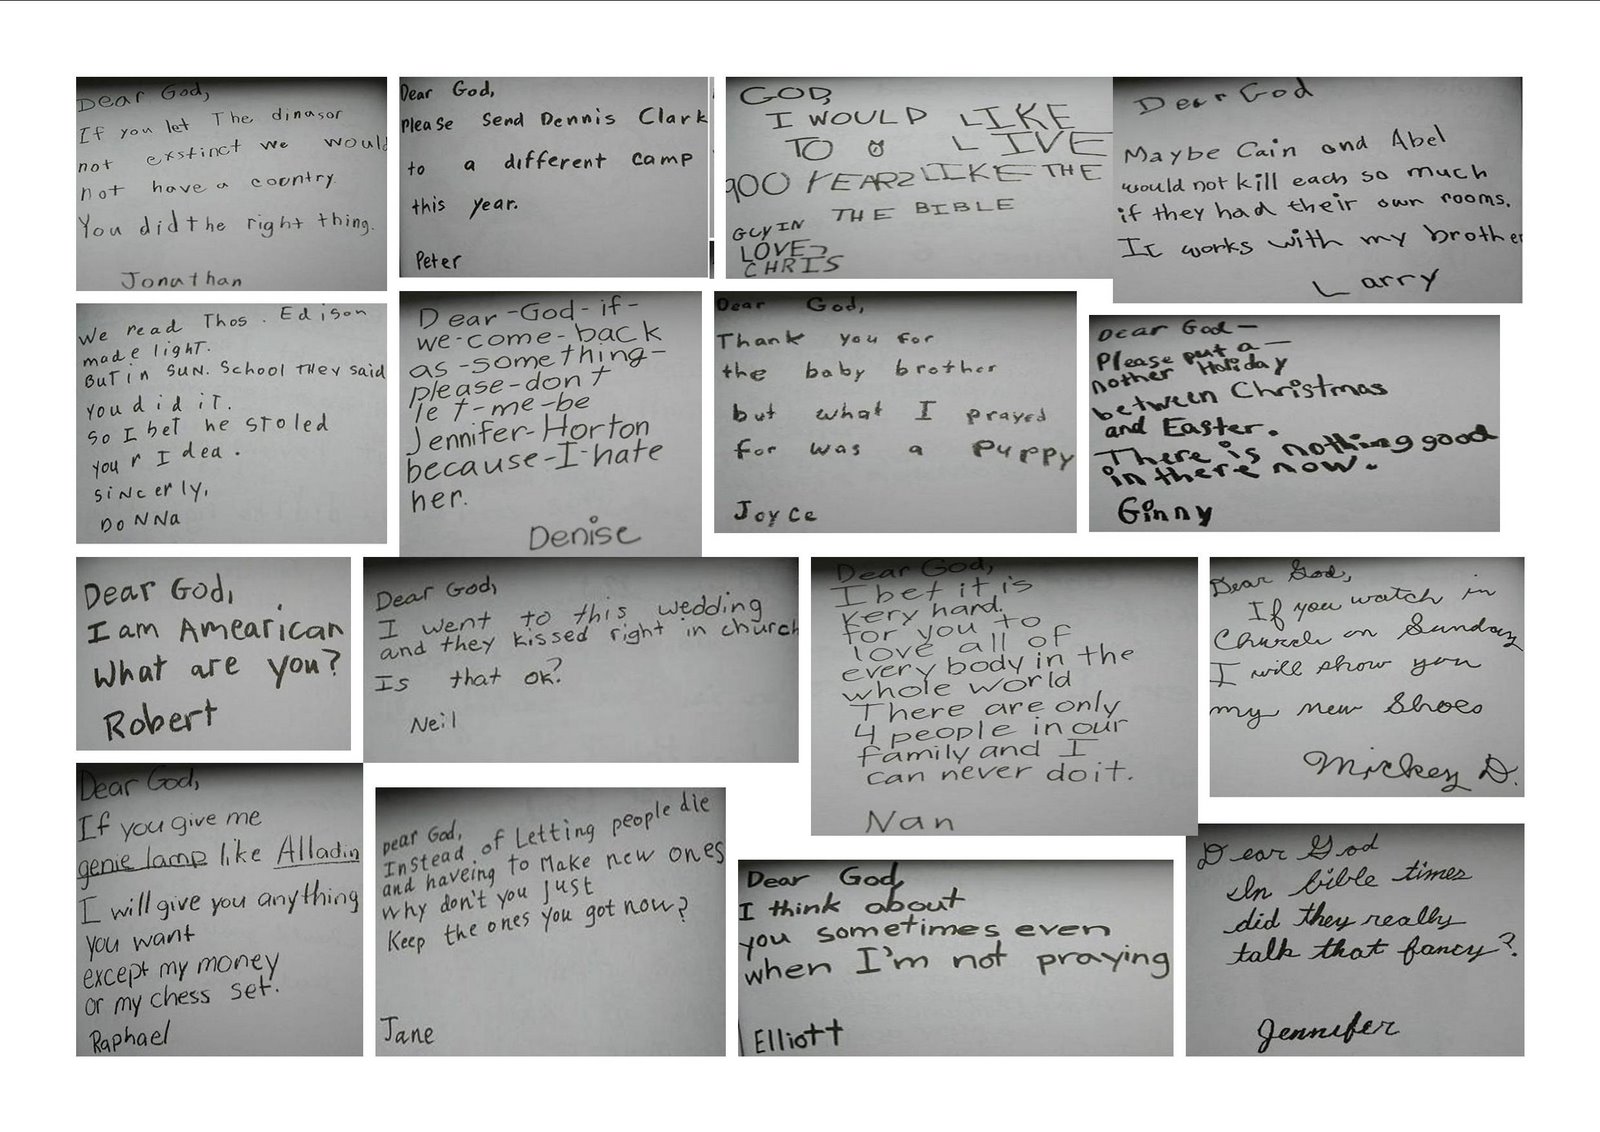 Dear God,
If you let The dinasor
not exstinct we would
not have a country.
You did the right thing.
Jonathan
Dear God,
Please Send Dennis Clark
to a different camp
this year.
Peter
GOD,
I WOULD LIKE
TO LIVE
900 YEARS LIKE THE
GUY IN THE BIBLE
LOVE,
CHRIS
Dear God
Maybe Cain and Abel
would not kill each so much
if they had their own rooms.
It works with my brother
Larry
We read Thos. Edison
made light.
But in Sun. School they said
you did it.
So I bet he stoled
your Idea.
Sincerly,
Donna
Dear-God-if-
we-come-back
as-something-
please-don't
let-me-be
Jennifer-Horton
because-I-hate
her.
Denise
Dear God,
Thank you for
the baby brother
but what I prayed
for was a puppy
Joyce
Dear God—
Please put a—
nother Holiday
between Christmas
and Easter.
There is nothing good
in there now.
Ginny
Dear God,
I am Amearican
What are you?
Robert
Dear God,
I went to this wedding
and they kissed right in church
Is that ok?
Neil
Dear God,
I bet it is
very hard.
for you to
love all of
every body in the
whole world
There are only
4 people in our
family and I
can never do it.
Nan
Dear God,
If you watch in
Church on Sunday
I will show you
my new Shoes
Mickey D.
Dear God,
If you give me
genie lamp like Alladin
I will give you anything
you want
except my money
or my chess set.
Raphael
Dear God,
Instead of Letting people die
and haveing to Make new ones
why don't you Just
Keep the ones you got now?
Jane
Dear God,
I think about
you sometimes even
when I'm not praying
Elliott
Dear God
In bible times
did they really
talk that fancy?
Jennifer